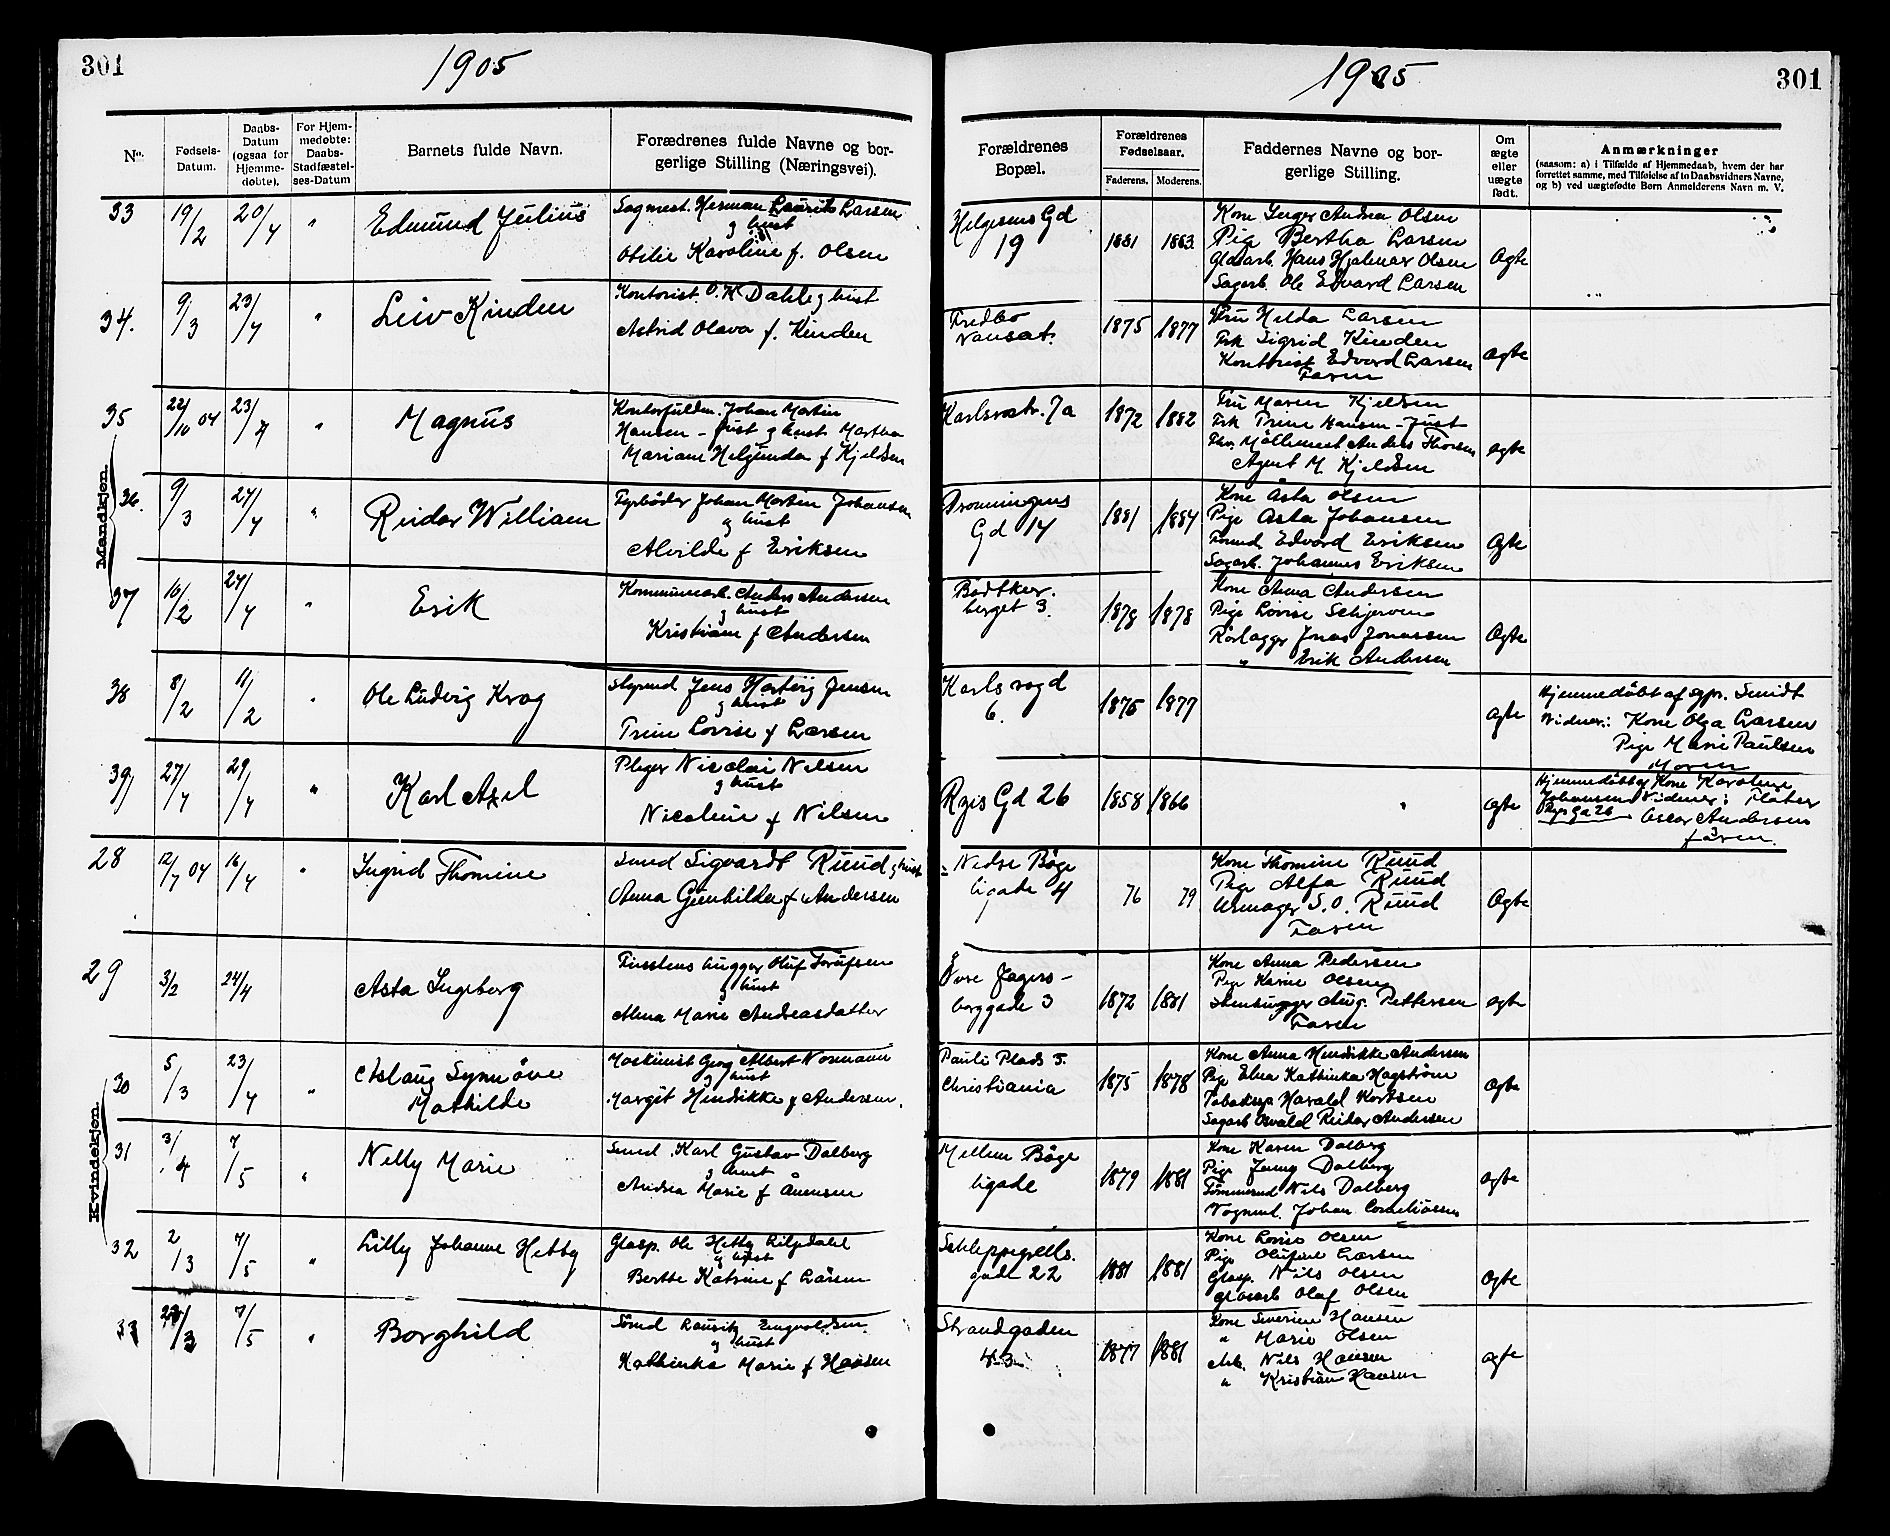 301
1905
No.
Fødsels-
Datum.
Daabs-
Datum
(ogsaa for
Hjemme-
døbte).
For Hjem-
medøbte:
Daabs-
Stadfæstel-
ses-Datum
Barnets fulde Navn.
Forædrenes fulde Navne og bor-
gerlige Stilling (Næringsvei).
33
19/2
20/4
"
Edmund Julius
Sagmest. Herman Laurits Larsen
g hust
Otilie Karoline f. Olsen
34.
9/3
23/4
"
Leiv Kinden
Kontorist. O. K Dahle g hust
Astrid Olava f. Kinden
Mandkjøn
35
22/10 04
23/4
"
Magnus
Kontorfuldm. Johan Martin
Hansen - Just g hust Martha
Mariane Helgunda f Kjeldsen
36.
9/3
24/4
"
Reidar William
Fyrbøder Johan Martin Johansen
g hust
Alvilde f Eriksen
37
16/2
24/4
"
Erik
Kommunearb. Anders Andersen
g hust
Kristiane f Andersen
38
8/2
11/2
"
Ole Ludvig Krog
Styrmd Jens Hartvig Jensen
g hust
Trine Lovise f Larsen
39
27/4
29/4
"
Karl Axel
Pleger Nicolai Nilsen
g hust
Nicoline f Nilsen
Kvindekjøn
28
12/7 04
16/4
"
Ingrid Thomine
Smed Sigvardt Ruud g hust
Anna Gunhilda f Andersen
29
3/2
24/4
Asta Ingeborg
hugger Oluf
g hust
Alma Marie Andreasdatter
30
5/3
23/4
"
Aslaug Synnøve
Mathilde
Maskinist Georg Albert Normann
g hust
Margit Hendrikke f Andersen.
31
3/4
7/5
"
Nelly Marie
Smed. Karl Gustav Dalberg
g hust
Andrea Marie f Anensen
32
2/3
7/5
"
Lilly Johanne Hetty
Glasp. Ole Hetty
g hust
Berthe Katrine f Larsen
33
23/3
7/5
"
Borghild
Smed Lauritz Engvoldsen.
g hust
Kathinka Marie f Hansen
301
1905
Forældrenes
Bopæl.
Forældrenes
Fødselsaar.
Faderens. Moderens.
Faddernes Navne og bor-
gerlige Stilling.
Om
ægte
eller
uægte
født.
Anmærkninger
(saasom: a) i Tilfælde af Hjemmedaab, hvem der har
forrettet samme, med Tilføielse af to Daabsvidners Navne,
og b) ved uægtefødte Børn Anmelderens Navn m. V.
Helgesens Gd
19
1881
1883
Kone Inger Andrea Olsen
Pige Bertha Larsen
Glasarb. Hans Hjalmar Olsen
Sagarb. Ole Edvard Larsen
Ægte
Fredbo
Nanset.
1875
1877
Fru Hilda Larsen
Frk Sigrid Kinden
Kontorist Edvard Larsen
Faren
Ægte
Karlsrostr. 7a
1872
1882
Fru Maren Kjeldsen
Frk Trine Hansen - Just
Møllemest Anders Thorsen
Agent M Kjeldsen
Ægte
Dronningens
Gd 14
1881
1884
Kone Åsta Olsen
Pige Asta Johansen
Formd Edvard Eriksen
Sagarb. Johannes Eriksen
Ægte
Bødtker.
berget 3
1878
1878
Kone Anna Andersen
Pige Lovise Schjerven
Rørlægger Jonas Jonassen
" Erik Andersen
Ægte
Karls vogd
6.
1875
1877
Ægte
Hjemmedøbt af sgpr. Smidt
Vidner: Kone Olga Larsen
Pige Marie Paulsen
Moren
Rgis Gd 26
1858
1866
"
Ægte
Hjemmedøbt af Kone Karoline
Johannsen Vidner: Fløter
Rgis Gd 26 Oscar Andersen
faren.
Nedre Bøge
ligade 4
76
79
Kone Thomine Ruud
Pige Alfa Ruud
Urmager S. O. Ruud
Faren
Ægte
Øvre Jegers-
borggade 3
1872
1881
Kone Anna Pedersen
Pige Karine Olsen
Stenhugger Aug. Pettersen
Faren
Ægte
Pauli Plads 5.
Christiania
1875
1878
Kone Anna Hendrikke Andersen
Pige Elna Kathinka Hagstrøm
Tobaksp Harald Kortsen
Sagarb Osvald Reidar Andersen
Ægte
Mellem Bøge
ligade
1879
1881
Kone Karen Dalberg
Pige Jenny Dalberg
Tømmermd Nils Dalberg
Vognmd. Johan Corneliussen
Ægte
Schleppegrells.
gade 22
1881
1881
Kone Lovise Olsen
Pige Olufine Larsen
Glasp. Nils Olsen
Glasarb Olaf Olsen
Ægte
Strandgaden
43
1877
1881
Kone Severine Hansen
" Marie Olsen
Arb. Nils Hansen
" Kristian Hansen
Ægte